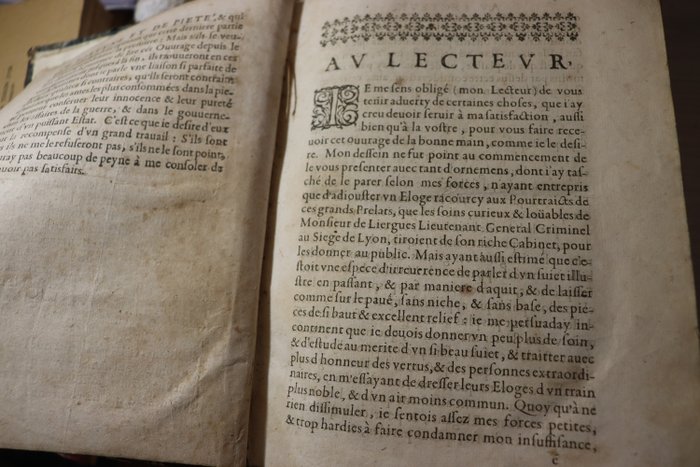 ET DE PIETÉ, & qui
que cette derniere partie
produire. Mais s'ils le veu-
lire ces Ouurage depuis le
à la fin, ils trouueront en ces
vne liaison si parfaite de
contraires, qu'ils seront contrains
des antes les plus consommées dans la pie-
conseruer leur innocence & leur pureté
affaires de la guerre, & dans le gouuerne-
d'vn puissant Estat. C'est ce que ie desire d'eux
recompense d'vn grand trauail: S'ils sont
ils ne me le refuseront pas, s'ils ne le sont point,
auray pas beaucoup de peyne à me consoler de
uoir pas satisfaits.
AV LECTEVR.
IE me sens obligé (mon Lecteur) de vous
tenir aduerty de certaines choses, que i'ay
creu deuoir seruir à ma satisfaction, aussi
bien qu'à la vostre, pour vous faire rece-
uoir cet ouurage de la bonne main, comme ie le desi-
re. Mon dessein ne fut point au commencement de
le vous presenter auec tant d'ornemens, dont i'ay tas-
ché de le parer selon mes forces, n'ayant entrepris
que d'adiouster vn Eloge racourcy aux Pourtraicts de
ces grands Prelats, que les soins curieux & loüables de
Monsieur de Liergues Lieutenant General Criminel
au Siege de Lyon, tiroient de son riche Cabinet, pour
les donner au public. Mais ayant aussi estimé que c'e-
stoit vne espece d'irreuerence de parler d'vn suiet illu-
stre en passant, & par maniere d'aquit, & de laisser
comme sur le paué, sans niche, & sans base, des pie-
ces de si haut & excellent relief: ie me persuaday in-
continent que ie deuois donner vn peu plus de soin,
& d'estude au merite d'vn si beau suiet, & traitter auec
plus d'honneur des vertus, & des personnes extraordi-
naires, en m'essayant de dresser leurs Eloges d'vn train
plus noble, & d'vn air moins commun. Quoy qu'à ne
rien dissimuler, ie sentois assez mes forces petites,
& trop hardies à faire condamner mon insuffisance,
c